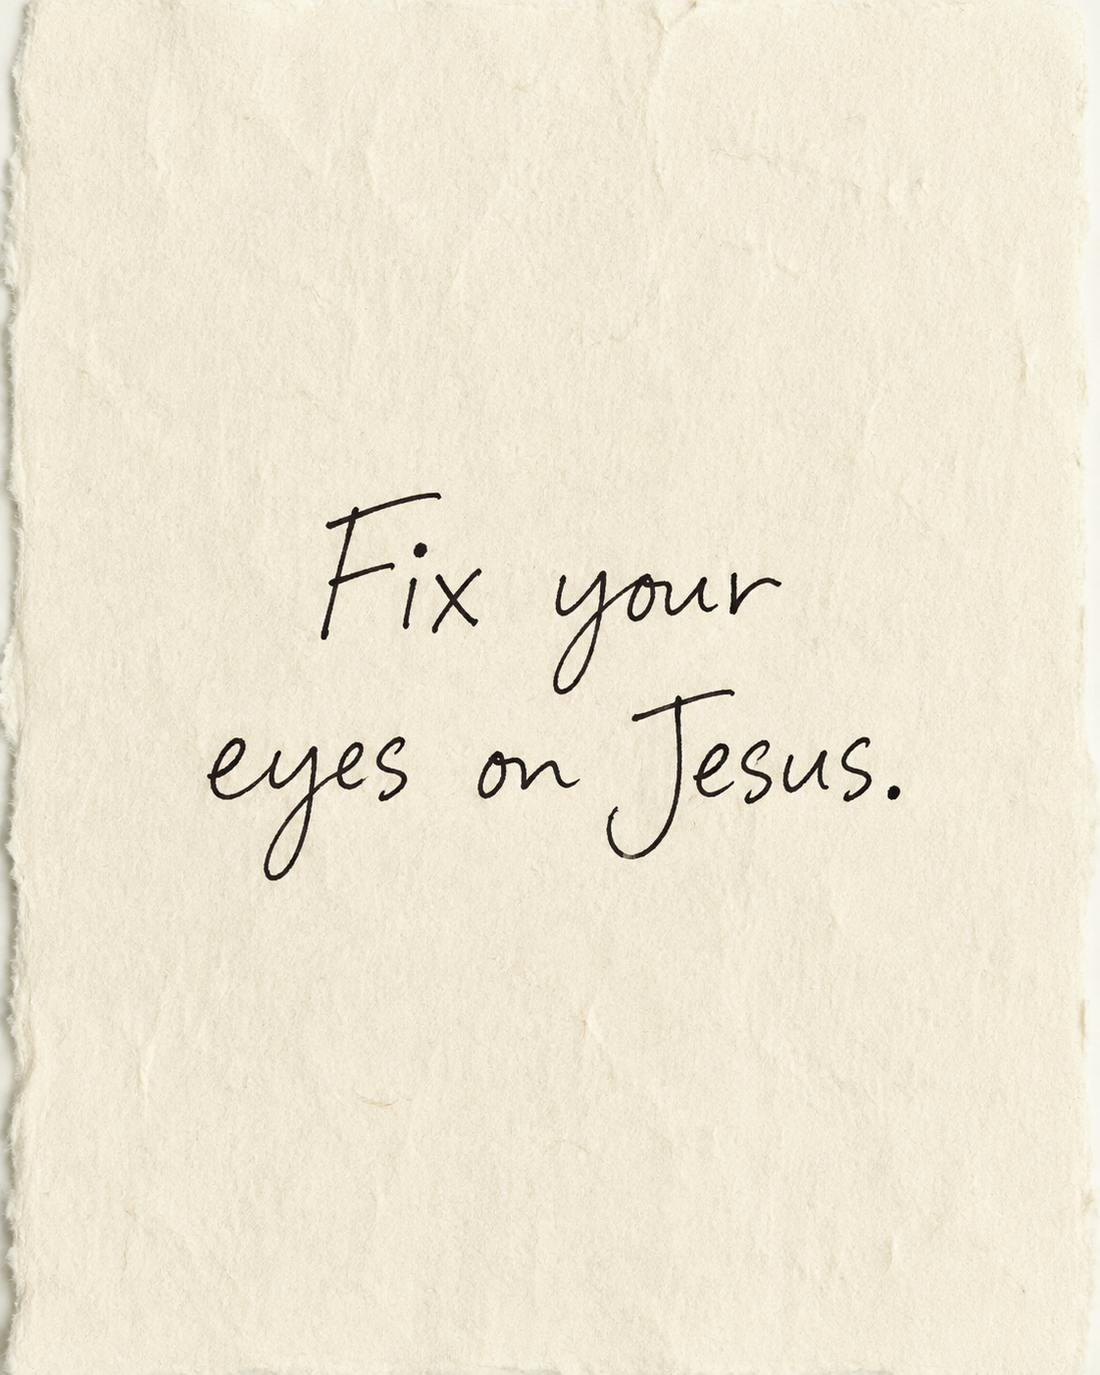 Fix your
eyes on Jesus.